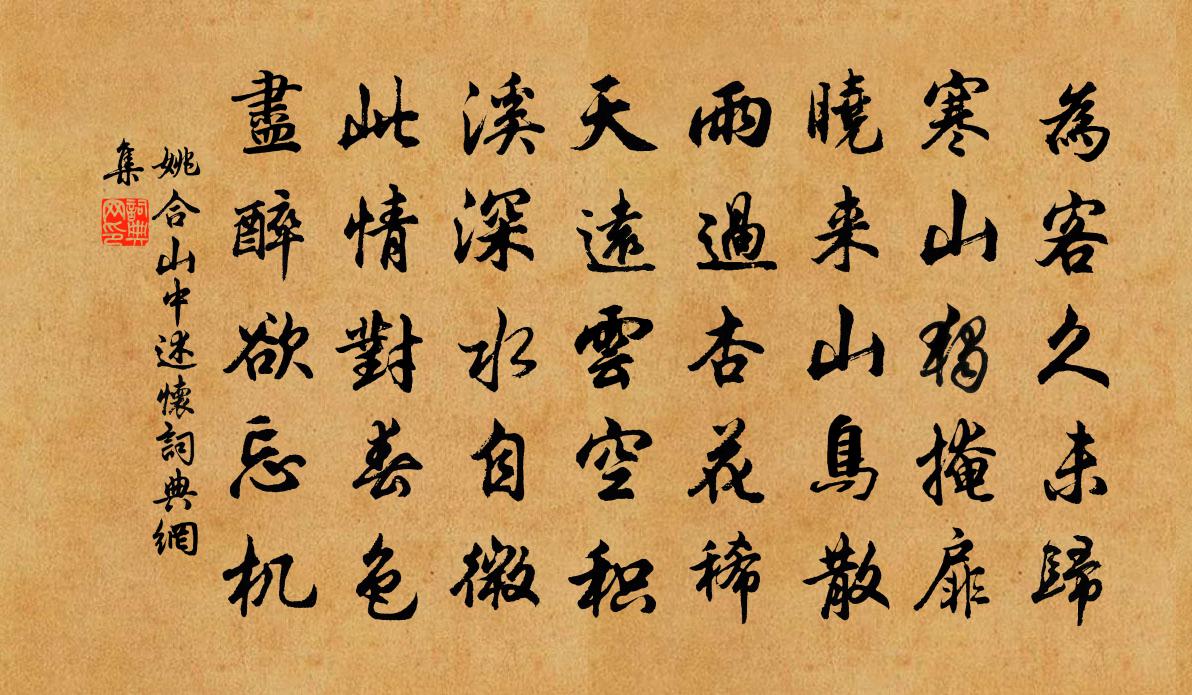 為客久未歸
寒山獨掩扉
曉来山鳥散
雨過杏花稀
天遠雲空积
溪深水自微
此情對春色
盡醉欲忘机
姚合山中述懷詞典網
集
詞典
网印